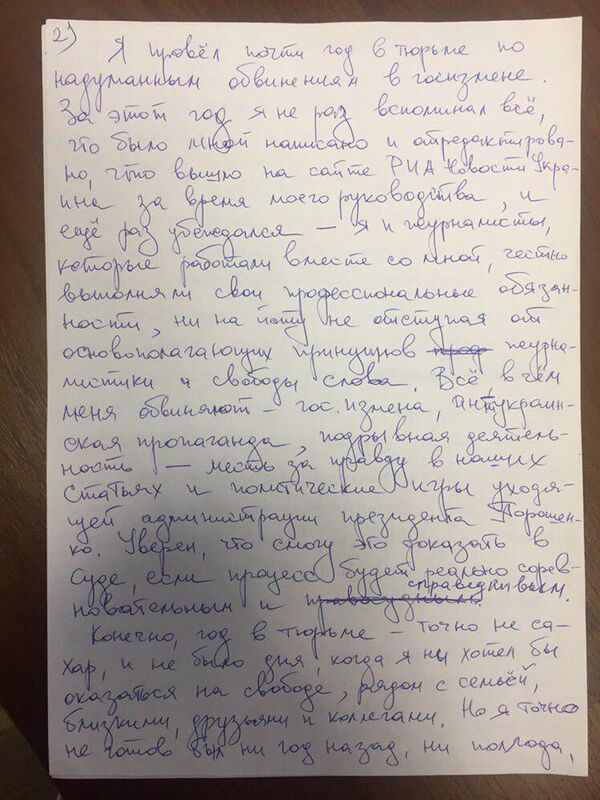 2)
Я провёл почти год в тюрьме по
надуманным обвинениям в госизмене.
За этот год я не раз вспоминал всё,
что было мной написано и отредактирова-
но, что вышло на сайте РИА Новости Укра-
ина за время моего руководства, и
ещё раз убеждался – я и журналисты,
которые работали вместе со мной, честно
выполняли свои профессиональные обязан-
ности, ни на йоту не отступая от
основополагающих принципов журна-
листики и свободы слова. Всё, в чём
меня обвиняют – гос. измена, антиукраин-
ская пропаганда, подрывная деятель-
ность – месть за правду в наших
статьях и политические игры уходя-
щей администрации президента Порошен-
ко. Уверен, что смогу это доказать в
суде, если процесс будет реально сорев-
новательным и справедливым.
Конечно, год в тюрьме – точно не са-
хар, и не было дня, когда я ни хотел бы
оказаться на свободе, рядом с семьёй,
близкими, друзьями и коллегами. Но я точно
не готов был ни год назад, ни полгода,